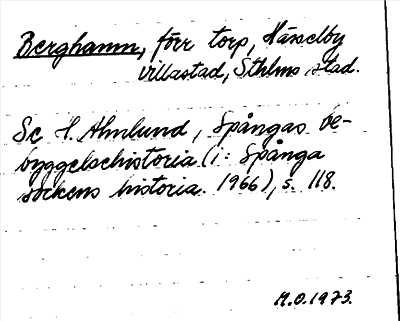 Berghamn, förr torp, Hässelby
villastad, Sthlms stad.
Se H. Ahnlund, Spångas be-
byggelsehistoria (i: Spånga
sockens historia. 1966), s. 118.
M.O. 1973.